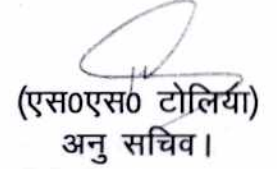 (एस०एस० टोलिया)
अनु सचिव।